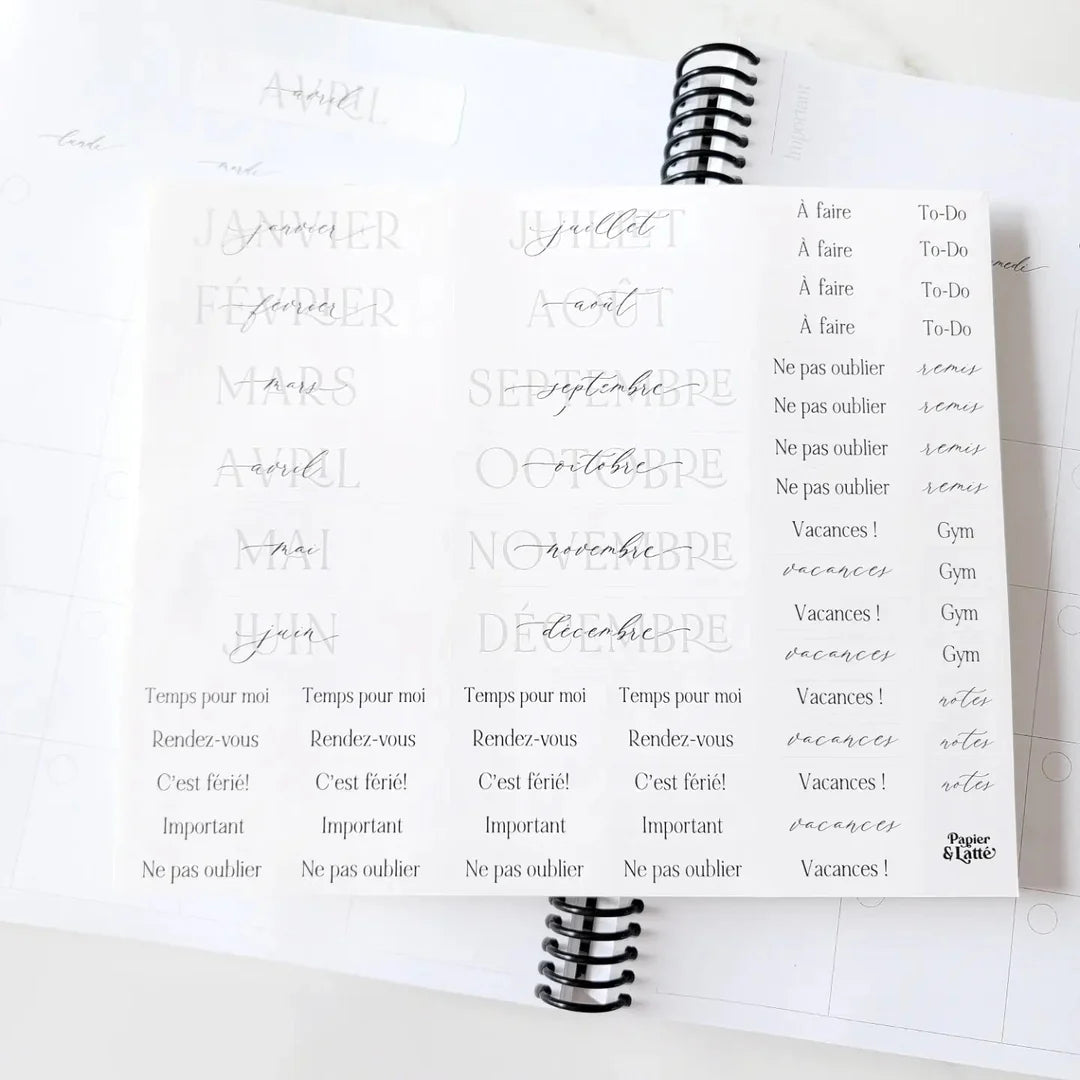 AVRIL
avril
lundi
mardi
Important
medi
JANVIER
janvier
FÉVRIER
février
MARS
mars
AVRIL
avril
MAI
mai
JUIN
juin
JUILLET
juillet
AOÛT
août
SEPTEMBRE
septembre
OCTOBRE
octobre
NOVEMBRE
novembre
DÉCEMBRE
décembre
À faire To-Do
À faire To-Do
À faire To-Do
À faire To-Do
Ne pas oublier remis
Ne pas oublier remis
Ne pas oublier remis
Ne pas oublier remis
Vacances ! Gym
vacances Gym
Vacances ! Gym
vacances Gym
Vacances ! notes
vacances notes
Vacances ! notes
vacances
Vacances !
Temps pour moi Temps pour moi Temps pour moi Temps pour moi
Rendez-vous Rendez-vous Rendez-vous Rendez-vous
C'est férié! C'est férié! C'est férié! C'est férié!
Important Important Important Important
Ne pas oublier Ne pas oublier Ne pas oublier Ne pas oublier
Papier
&Latté